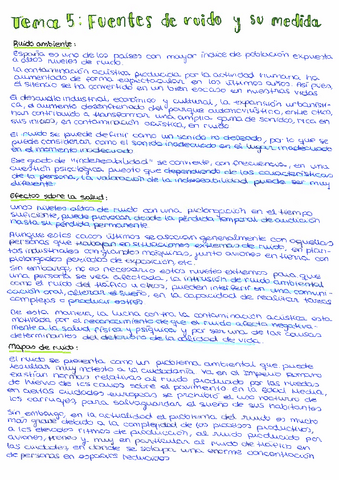 Tema 5: Fuentes de ruido y su medida
Ruido ambiente:
España es uno de los países con mayor índice de población expuesta
a altos niveles de ruido.
La contaminación acústica producida por la actividad humana ha
aumentado de forma espectacular en los últimos años. Así pues,
el silencio se ha convertido en un bien escaso en nuestras vidas
El desarrollo industrial, económico y cultural, la expansión urbanísti-
ca, el aumento desenfrenado del parque automovilístico, entre otros,
han contribuido a transformar una amplia gama de sonidos, rica en
sus inicios, en contaminación acústica, en ruido
El ruido se puede definir como un sonido no deseado, por lo que se
puede considerar como el sonido inadecuado en el lugar inadecuado
en el momento inadecuado
Ese grado de "indeseabilidad" se convierte, con frecuencia, en una
cuestión psicológica puesto que dependiendo de las características
de la persona, la valoración de la indeseabilidad puede ser muy
diferente
Efectos sobre la salud:
Unos niveles altos de ruido con una prolongación en el tiempo
suficiente, puede provocar desde la pérdida temporal de audición
hasta su pérdida permanente
Aunque estos casos últimos se asocian generalmente con aquellas
personas que trabajan en situaciones extremas de ruido, el plan-
tas industriales con grandes máquinas, junto aviones en tierra con
prolongados periodos de exposición etc.
Sin embargo, no es necesario estos niveles extremos para que
una persona se vea afectada, la intrusión de ruido ambiental
como el ruido del tráfico u otros, pueden interferir en una comuni-
cación oral, alterar el sueño, en la capacidad de realizar tareas
complejas o producir estrés
De esta manera, la lucha contra la contaminación acústica está
motivada por el reconocimiento de que el ruido afecta negativa-
mente a la salud física y psíquica y por ser una de las causas
determinantes del deterioro de la calidad de vida.
Mapas de ruido:
El ruido se presenta como un problema ambiental que puede
resultar muy molesto a la ciudadanía. Ya en el Imperio Romano
existían normas relativas del ruido producido por las ruedas
de hierro de los carros sobre el pavimento. En la Edad Media,
en ciertas ciudades europeas se prohibió el uso nocturno de
los carruajes para salvaguardar el sueño de sus habitantes
Sin embargo, en la actualidad el problema del ruido es mucho
más grave debido a la complejidad de los procesos productivos,
a los elevados ritmos de producción, al ruido producido por
aviones, trenes y, muy en particular al ruido de tráfico en
las ciudades en donde se solapa una enorme concentración
de personas en espacios reducidos